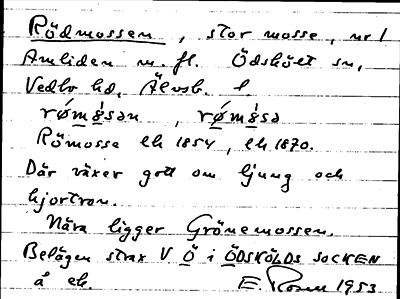 Rödmossen, stor mosse, nr 1
Amliden m. fl. Ödskölt sn,
Vedbo hd, Älvsb. l.
Römosse ek 1854, ek 1870.
Där växer gott om ljung och
hjortron.
Nära ligger Grönemossen.
Belägen strax V Ö i ÖDSKÖLDS SOCKEN
å ek.
E. Rosen 1953